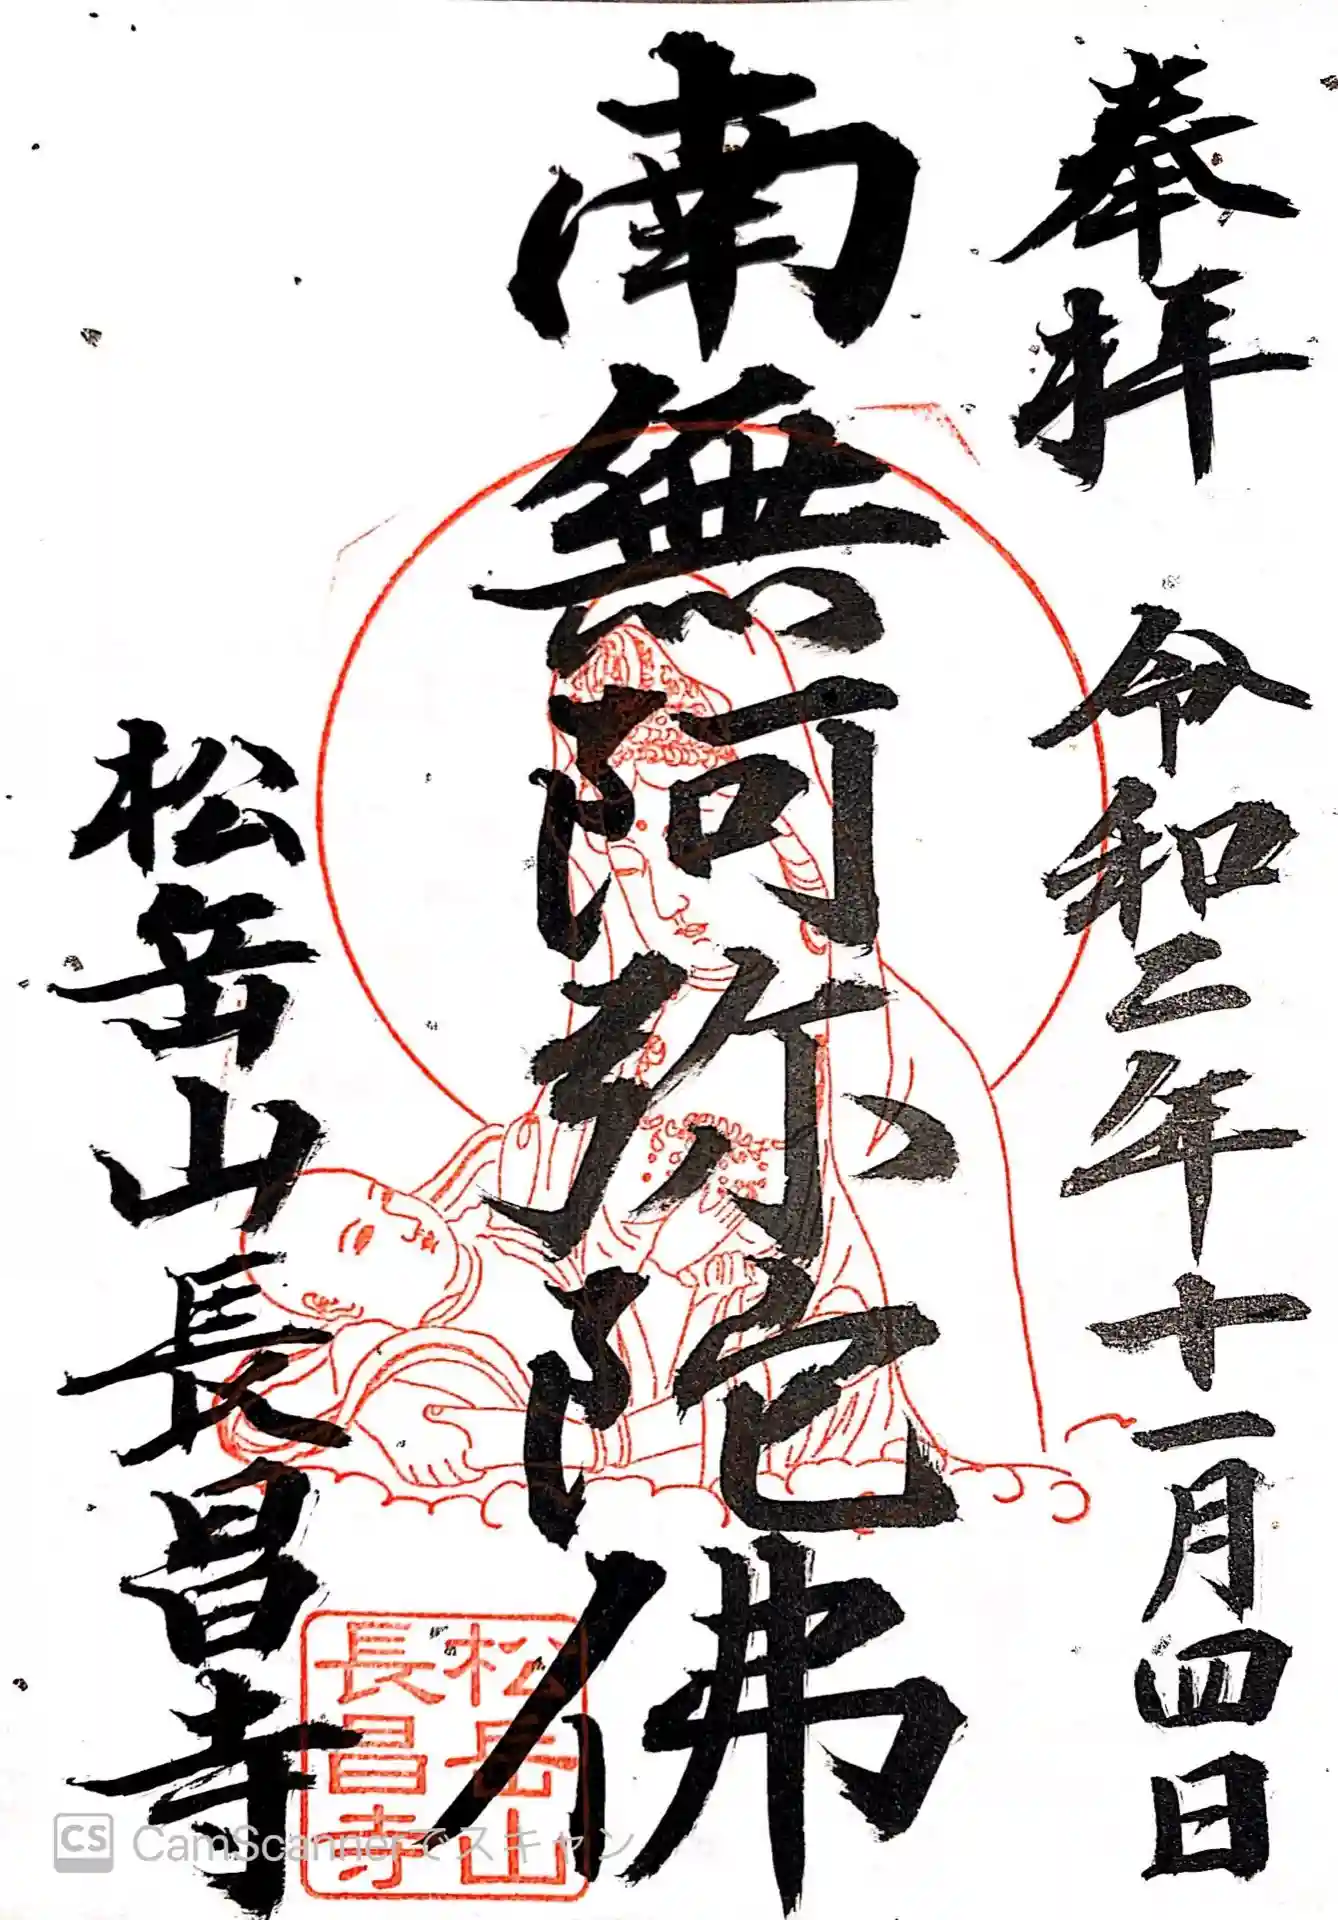 奉拝
令和二年十一月四日
南無阿弥陀佛
松岳山長昌寺
松岳山
長昌寺
CS CamScannerでスキャン